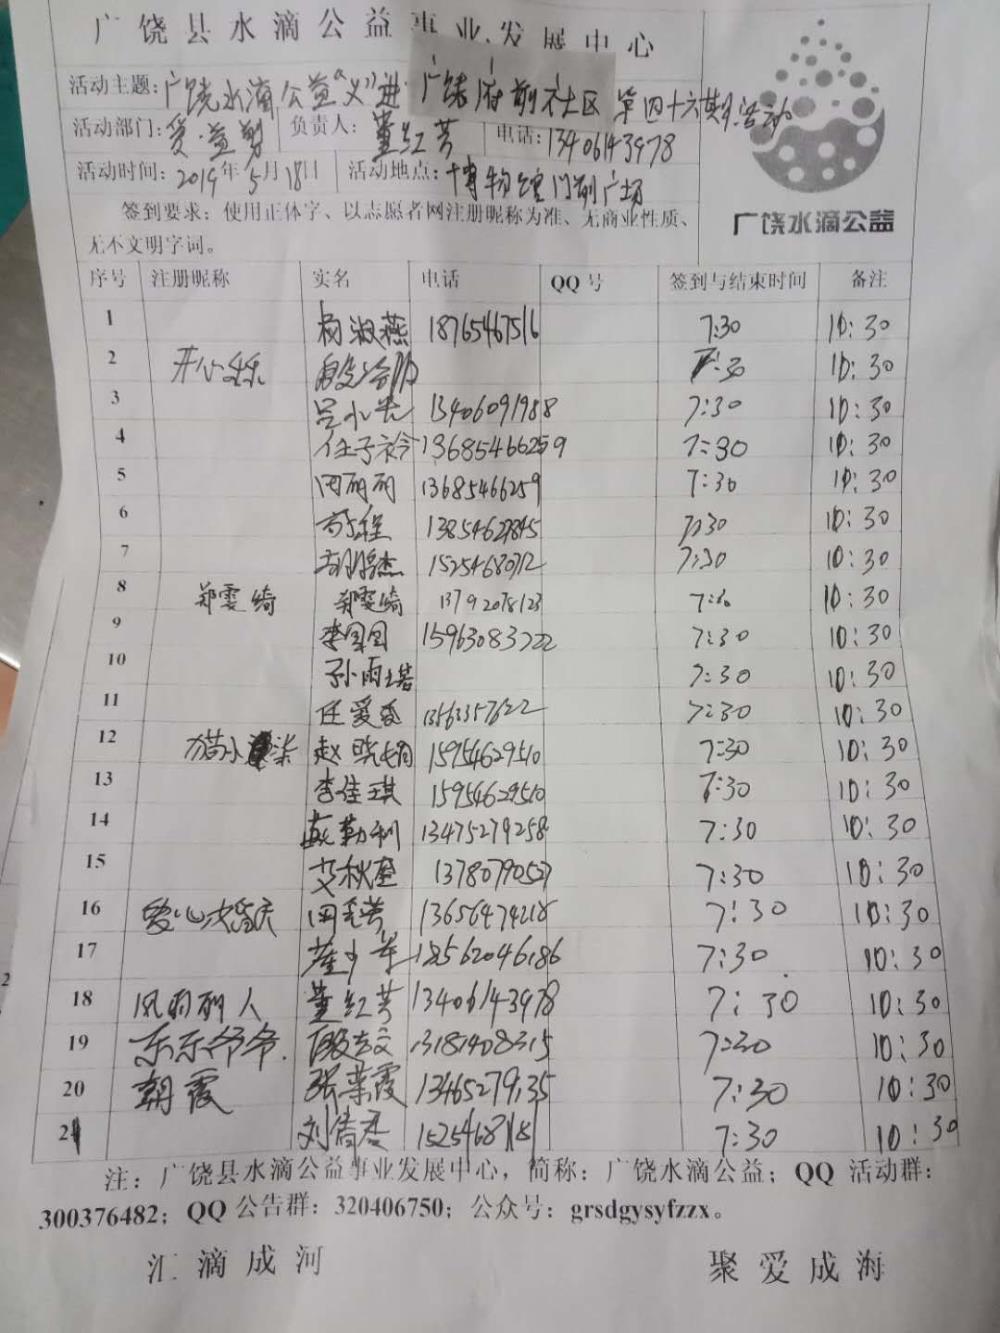 广饶县水滴公益事业发展中心
活动主题：广饶水滴公益“义”进广饶府前社区第四十六期活动
活动部门：爱·益剪 负责人：董红芳 电话：13406143978
活动时间：2019年5月18日 活动地点：博物馆门前广场
签到要求：使用正体字、以志愿者网注册昵称为准、无商业性质、
无不文明字词。
广饶水滴公益
序号 注册昵称 实名 电话 QQ号 签到与结束时间 备注
1 杨淑燕 18765467516 7:30 10:30
2 开心 7:30 10:30
3 吕小 13406091988 7:30 10:30
4 任子衿 13685466259 7:30 10:30
5 田丽丽 13685466259 7:30 10:30
6 13854627845 7:30 10:30
7 15254680712 7:30 10:30
8 郑雯绮 郑雯绮 13792078123 10:30
9 李国国 15963083722 7:30 10:30
10 孙雨 7:30 10:30
11 任爱香 13563357622 7:30 10:30
12 猫小柒 赵晓娟 15954629510 7:30 10:30
13 李佳琪 15954629510 7:30 10:30
14 燕勤利 13475279258 7:30 10:30
15 艾秋 7:30 10:30
16 爱心 13656474218 7:30 10:30
17 18562046186 7:30 10:30
18 风雨丽人 董红芳 13406143978 7:30 10:30
19 东东爷爷. 13181408315 7:30 10:30
20 朝霞 张荣霞 13465279135 7:30 10:30
21 7:30 10:30
注：广饶县水滴公益事业发展中心，简称：广饶水滴公益；QQ 活动群：
300376482；QQ 公告群：320406750；公众号：grsdgysyfzzx。
汇滴成河 聚爱成海